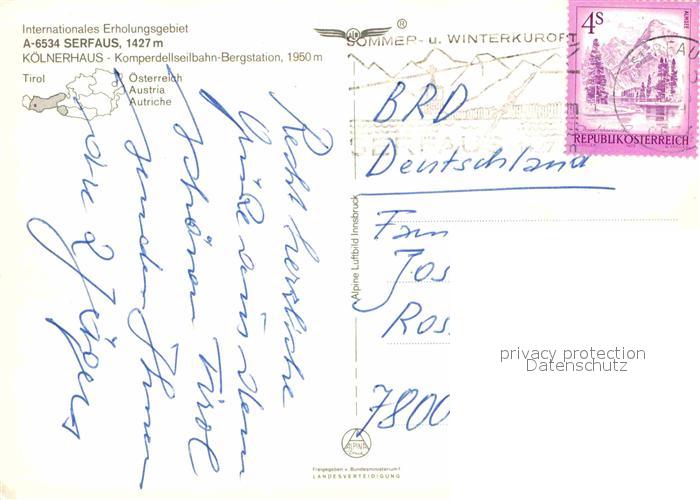 Internationales Erholungsgebiet
A-6534 SERFAUS, 1427 m
KÖLNERHAUS - Komperdellseilbahn-Bergstation, 1950 m
Tirol
Österreich
Austria
Autriche
Recht herzliche
Grüße aus dem
schönen Tirol
senden Ihnen
die 2 Jägers
Alpine Luftbild Innsbruck
ALPINE
Freigegeben v. Bundesministerium f.
LANDESVERTEIDIGUNG
®
SOMMER- u. WINTERKURORT
SERFAUS
4S
ALMSEE
REPUBLIK ÖSTERREICH
BRD
Deutschland
Fam
Jos
Ros
7800
privacy protection
Datenschutz